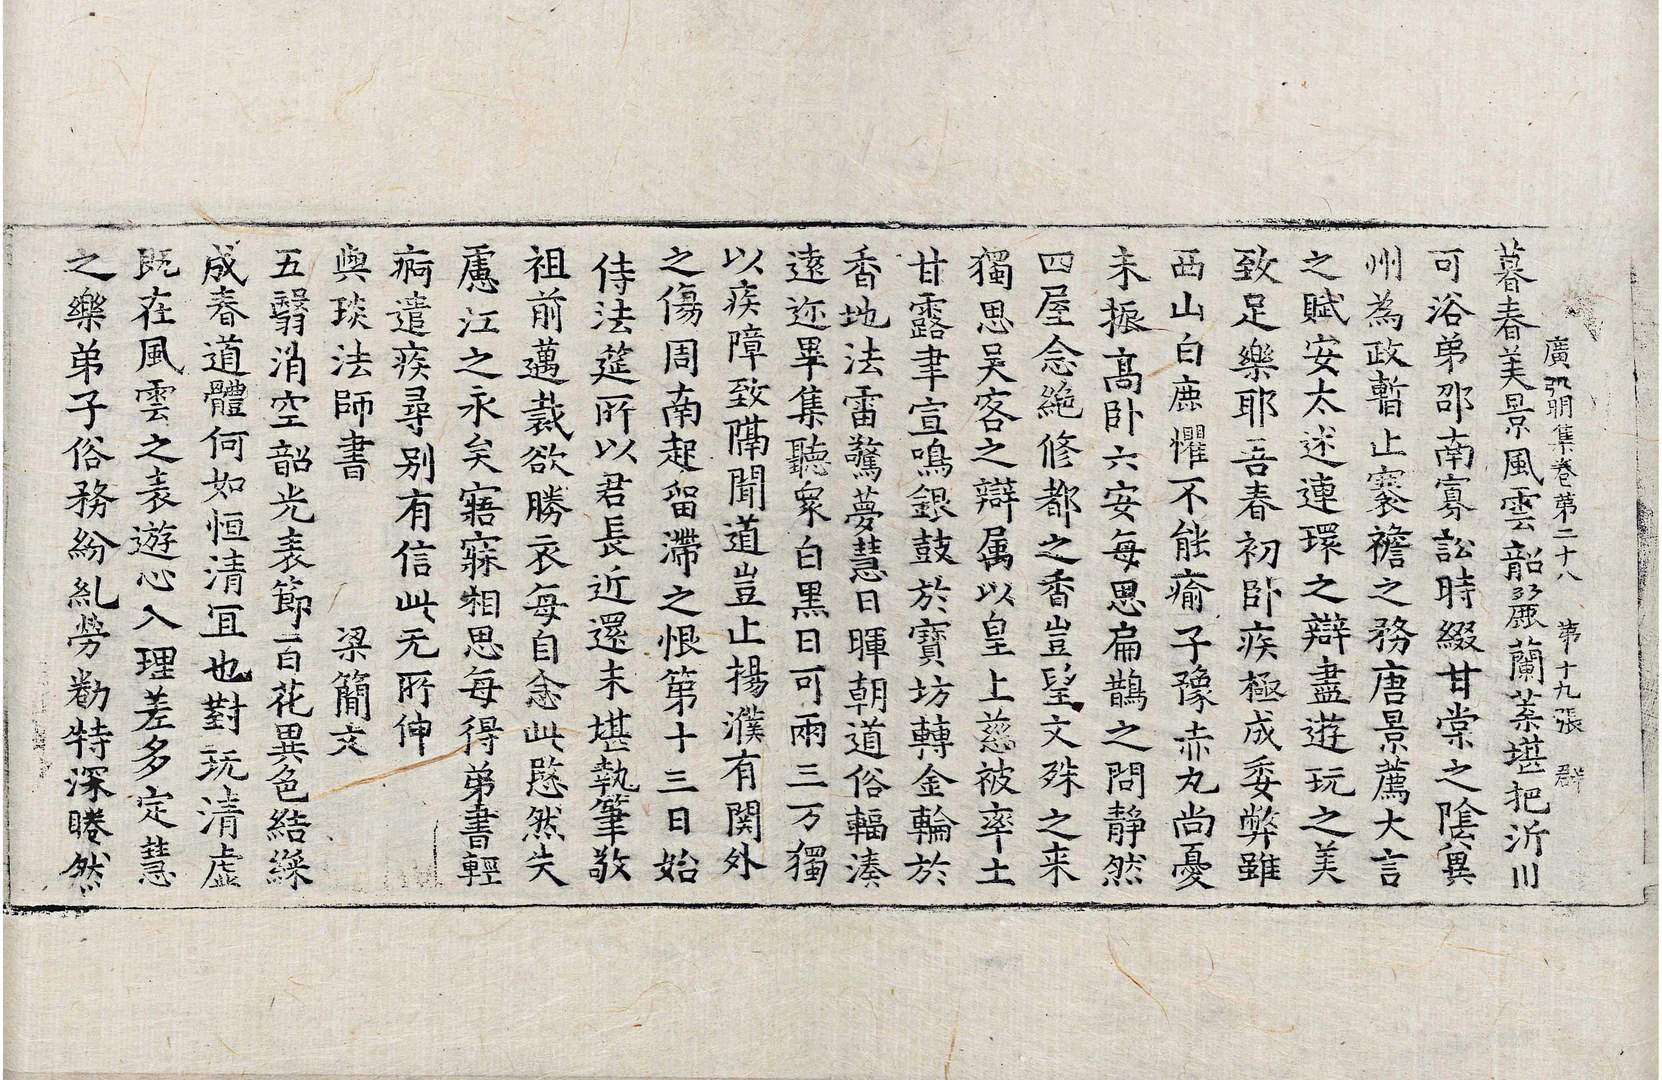 廣弘明集卷第二十八 第十九張 群
暮春美景風雲韶麗蘭葉堪把沂川
可浴弟邵南寡訟時綴甘棠之陰冀
州為政暫止褰襜之務唐景薦大言
之賦安太述連環之辯盡遊玩之美
致足樂耶吾春初卧疾極成委弊雖
西山白鹿懼不能瘉子豫赤丸尚憂
未振高卧六安每思扁鵲之問靜然
四屋念絶修都之香豈望文殊之来
獨思吳客之辯属以皇上慈被率土
甘露聿宣鳴銀鼓於寶坊轉金輪於
香地法雷驚夢慧日暉朝道俗輻湊
遠迩畢集聽衆白黑日可兩三万獨
以疾障致隔聞道豈止楊濮有関外
之傷周南起留滯之恨第十三日始
侍法筵所以君長近還未堪執筆敬
祖前邁裁欲勝衣每自念此愍然失
慮江之永矣寤寐相思每得弟書輕
痾遣疾尋別有信此无所伸
與琰法師書 梁簡文
五翳消空韶光表節百花異色結綵
成春道體何如恒清冝也對玩清虛
既在風雲之表遊心入理差多定慧
之樂弟子俗務紛糺勞勤特深睠然